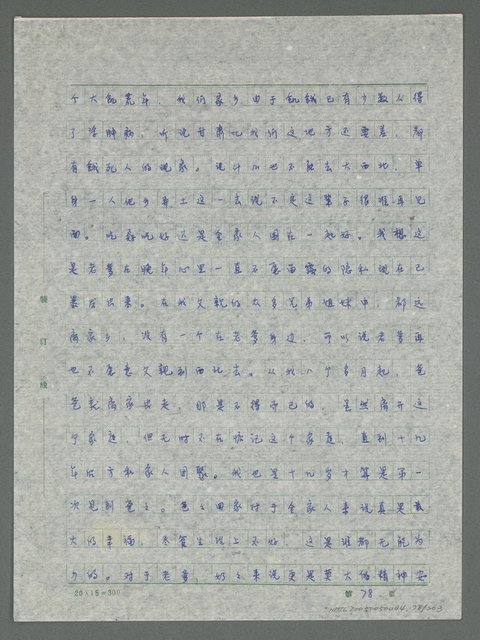 个大饥荒年，我们家乡由于饥饿已有少数人得
了浮肿病，听说甘肃比我们这地方还要差，都
有饿死人的现象。说什么也不能去大西北，单
身一人他乡异土这一去说不定这辈子很难再见
面。吃孬吃好还是全家人团在一起好。我想这
是老爹在晚年心里一直不愿面露的隐私现在已
暴发出来。在我父亲的众多兄弟姐妹中，都远
离家乡，没有一个在老爹身边，可以说老爹再
也不愿意父亲到西北去。从我八个多月起，爸
爸就离家出走，那是不得已的，虽然离开这
个家庭，但无时不在惦记这个家庭，直到十九
年后方和家人团聚。我也是十九岁才算是第一
次见到爸爸。爸爸回家对于全家人来说真是最
大的幸福，尽管生活上不好，这是谁都无能为
力的。对于老爹，奶奶来说更是莫大的精神安
装
订
线
20×15=300
第78页
NMTL20050050004, 78/203